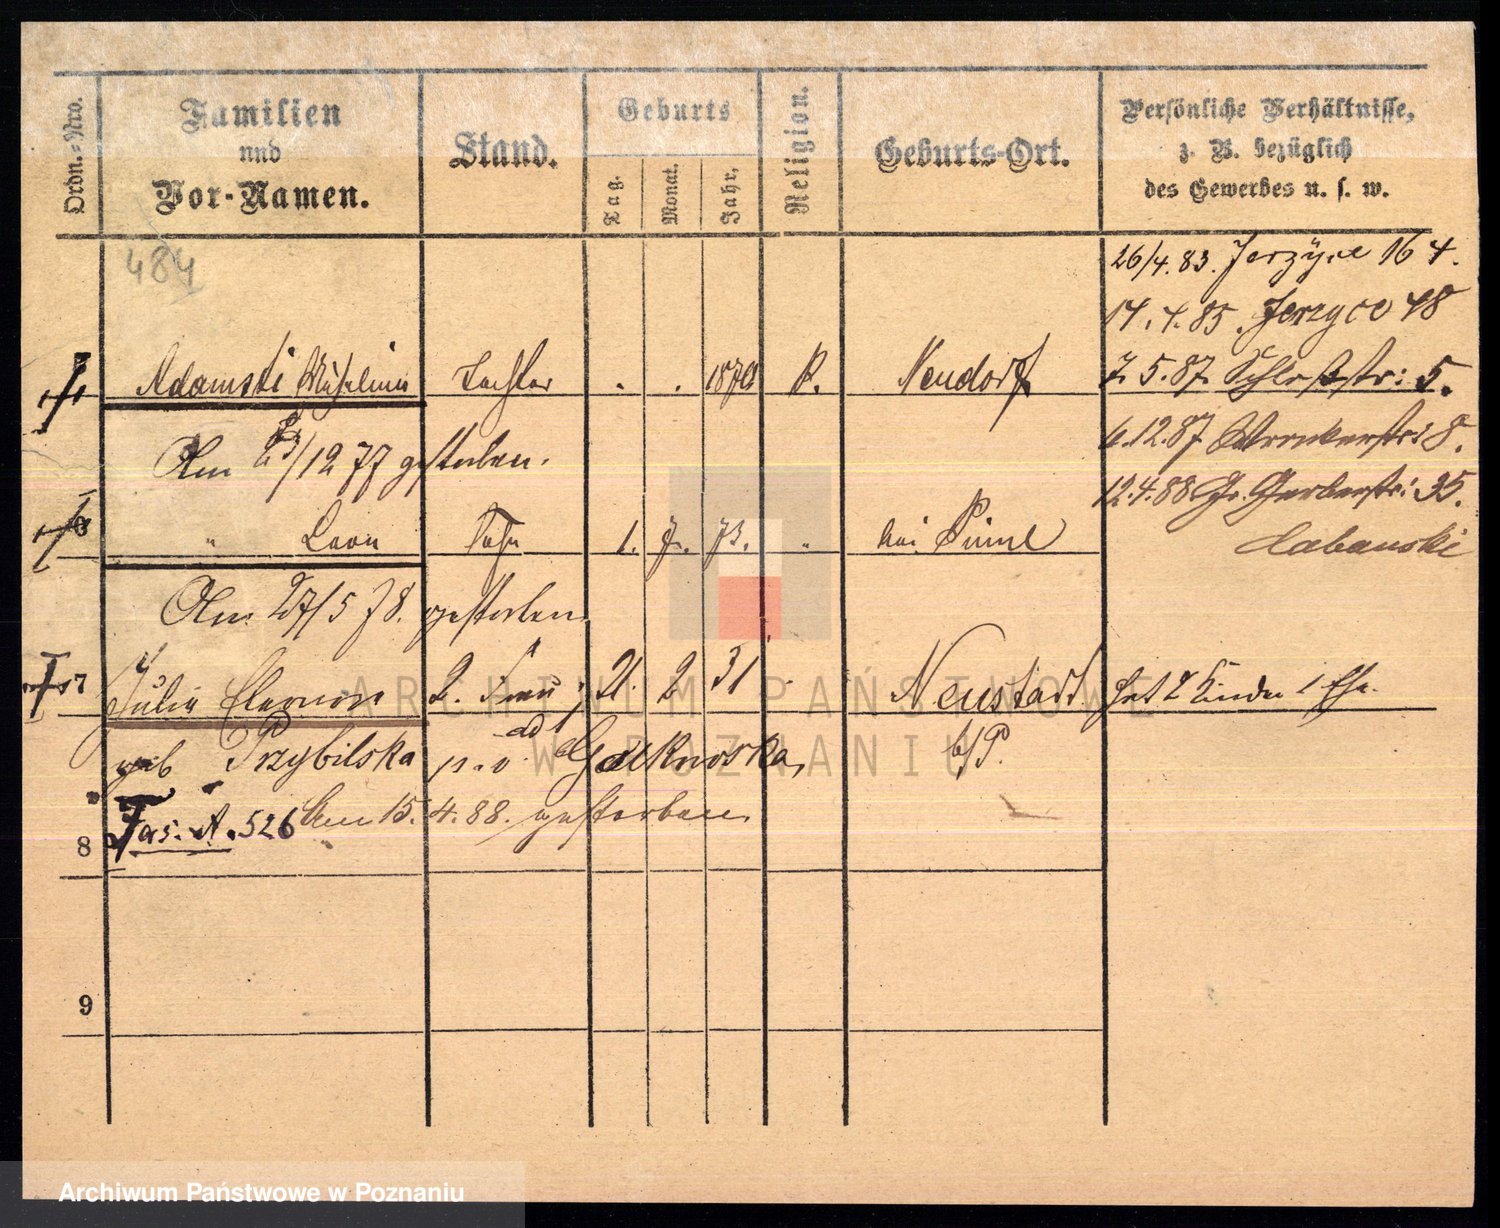 Ordn.-Nro.
Familien
und
Vor-Namen.
Stand.
Geburts
Tag.
Monat.
Jahr.
Religion.
Geburts-Ort.
Persönliche Verhältnisse,
z. B. bezüglich
des Gewerbes u. s. w.
484
26/4.83. Jerzyce 16
14.4.85. Jerzyce 48
Adamski Tochter . . K. Neudorf
7.5.87 Schloßstr: 5.
6.12.87 Wronkerstr: 8.
Am /12 77 gestorben.
12.4.88 Gr. Gerberstr: 35.
" Leon Sohn 1. 7. 73. " bei
Am 27/5 78. gestorben
7 Julia 2. Frau 21. 2 31 Neustadt hat 2 Kinder 1 Ehe.
b/P.
geb Przybilska
Am 15.4.88. gestorben
A. 526
8
9
ARCHIWUM PAŃSTWOWE
W POZNANIU
Archiwum Państwowe w Poznaniu